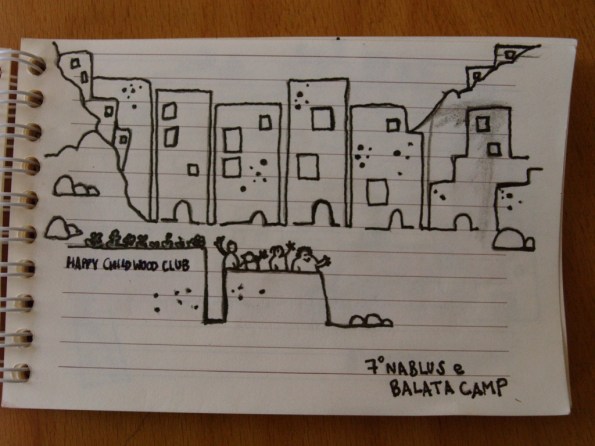 HAPPY CHILDWOOD CLUB
7° NABLUS e
BALATA CAMP